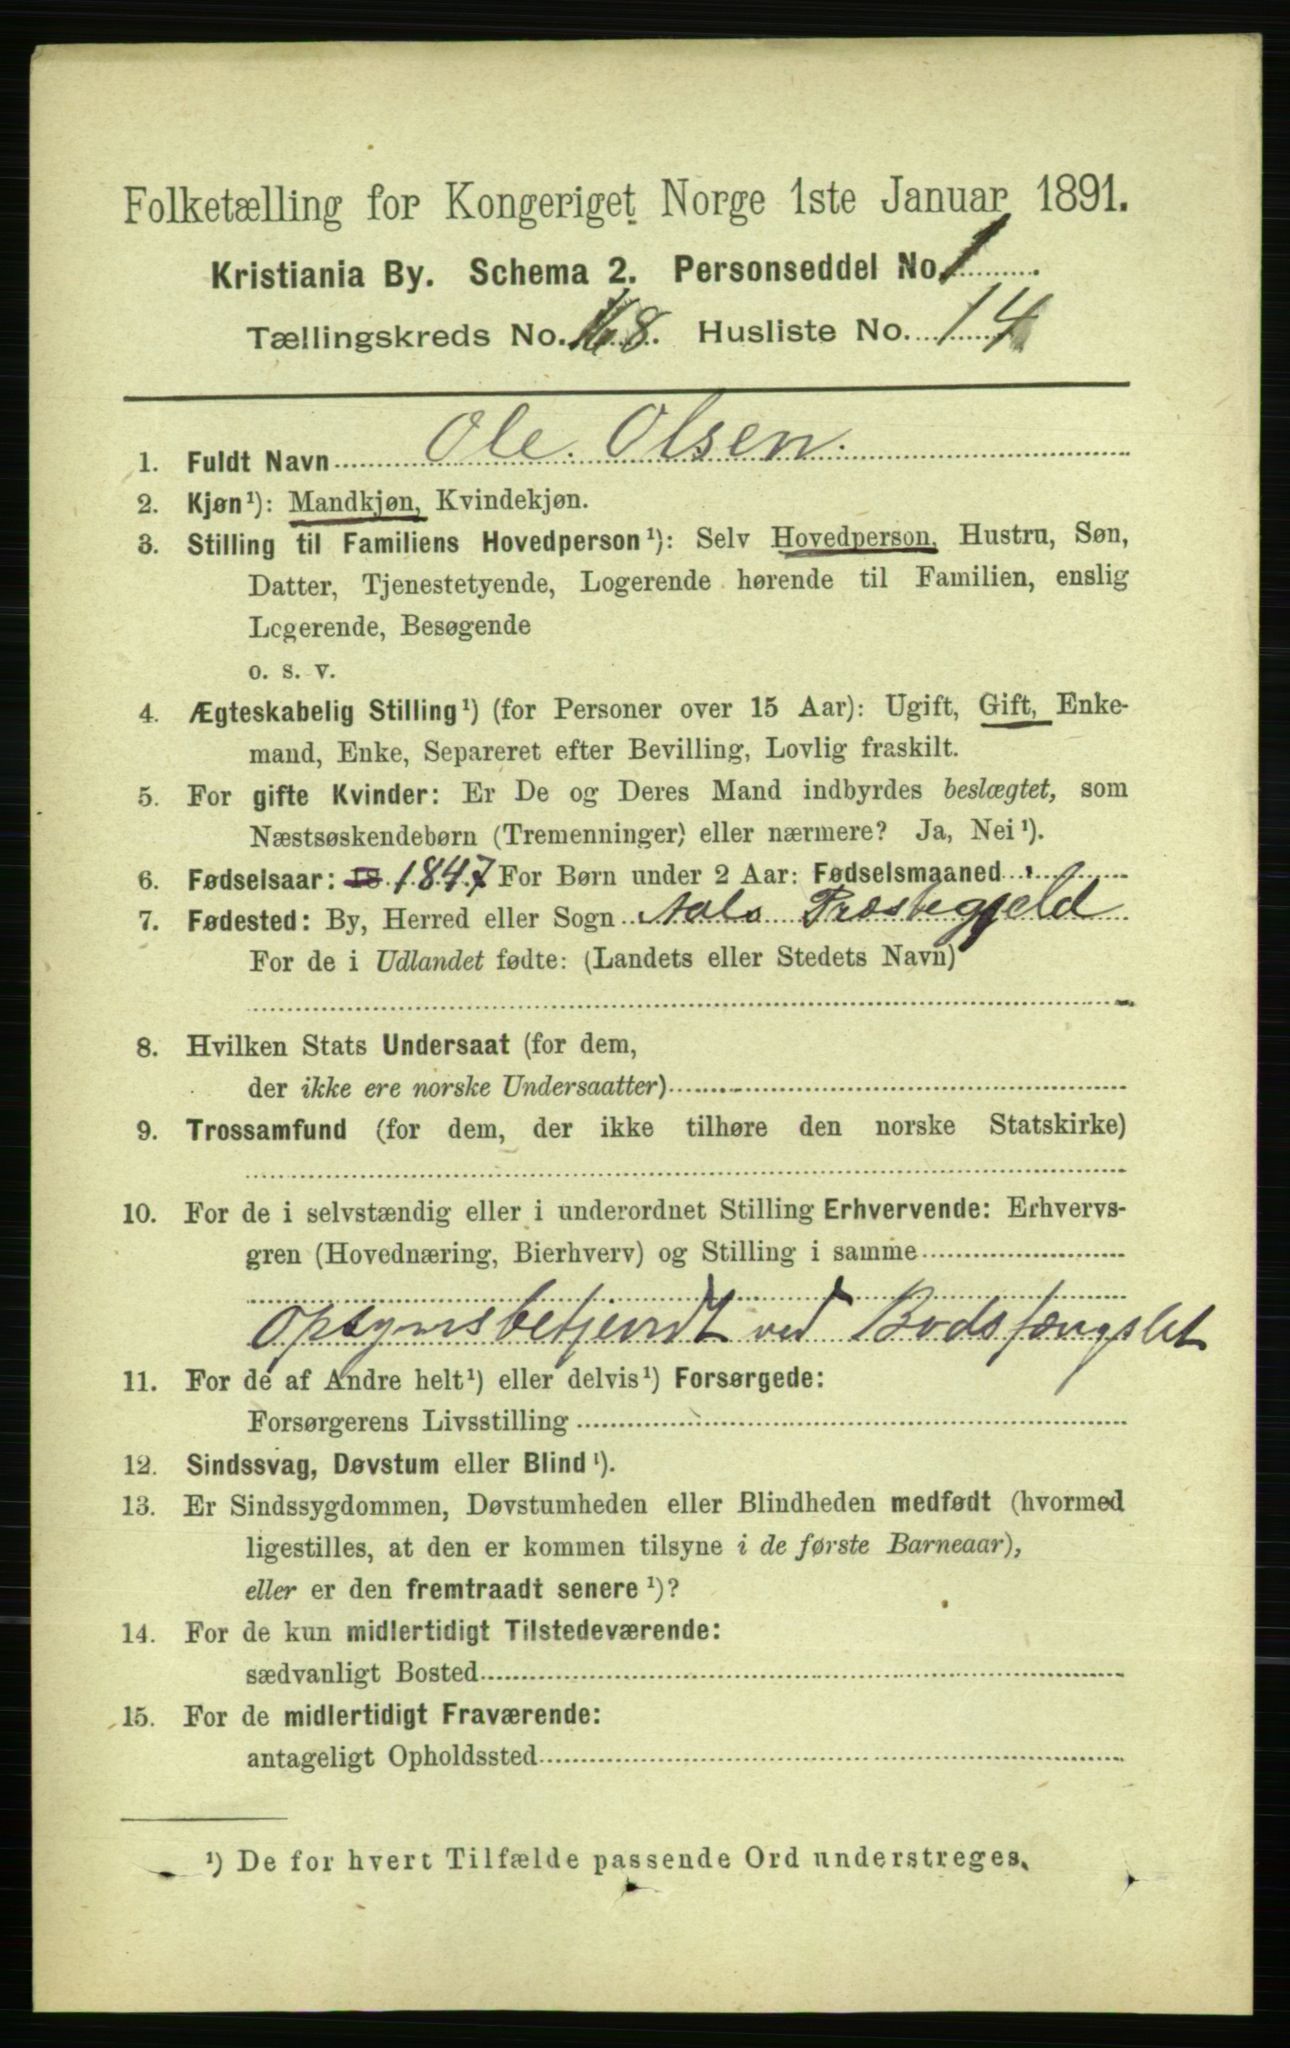 Folketælling for Kongeriget Norge 1ste Januar 1891.
Kristiania By. Schema 2. Personseddel No. 1
Tællingskreds No. 168. Husliste No. 14
1. Fuldt Navn Ole Olsen.
2. Kjøn¹): Mandkjøn, Kvindekjøn.
3. Stilling til Familiens Hovedperson¹): Selv Hovedperson, Hustru, Søn,
Datter, Tjenestetyende, Logerende hørende til Familien, enslig
Logerende, Besøgende
o. s. v.
4. Ægteskabelig Stilling¹) (for Personer over 15 Aar): Ugift, Gift, Enke-
mand, Enke, Separeret efter Bevilling, Lovlig fraskilt.
5. For gifte Kvinder: Er De og Deres Mand indbyrdes beslægtet, som
Næstsøskendebørn (Tremenninger) eller nærmere? Ja, Nei¹).
6. Fødselsaar: 18 1847 For Børn under 2 Aar: Fødselsmaaned
7. Fødested: By, Herred eller Sogn Aals Præstegjeld
For de i Udlandet fødte: (Landets eller Stedets Navn)
8. Hvilken Stats Undersaat (for dem,
der ikke ere norske Undersaatter)
9. Trossamfund (for dem, der ikke tilhøre den norske Statskirke)
10. For de i selvstændig eller i underordnet Stilling Erhvervende: Erhvervs-
gren (Hovednæring, Bierhverv) og Stilling i samme
opsynsbetjendt ved Bodsfængslet
11. For de af Andre helt¹) eller delvis¹) Forsørgede:
Forsørgerens Livsstilling
12. Sindssvag, Døvstum eller Blind¹).
13. Er Sindssygdommen, Døvstumheden eller Blindheden medfødt (hvormed
ligestilles, at den er kommen tilsyne i de første Barneaar),
eller er den fremtraadt senere¹)?
14. For de kun midlertidigt Tilstedeværende:
sædvanligt Bosted
15. For de midlertidigt Fraværende:
antageligt Opholdssted
¹) De for hvert Tilfælde passende Ord understreges.